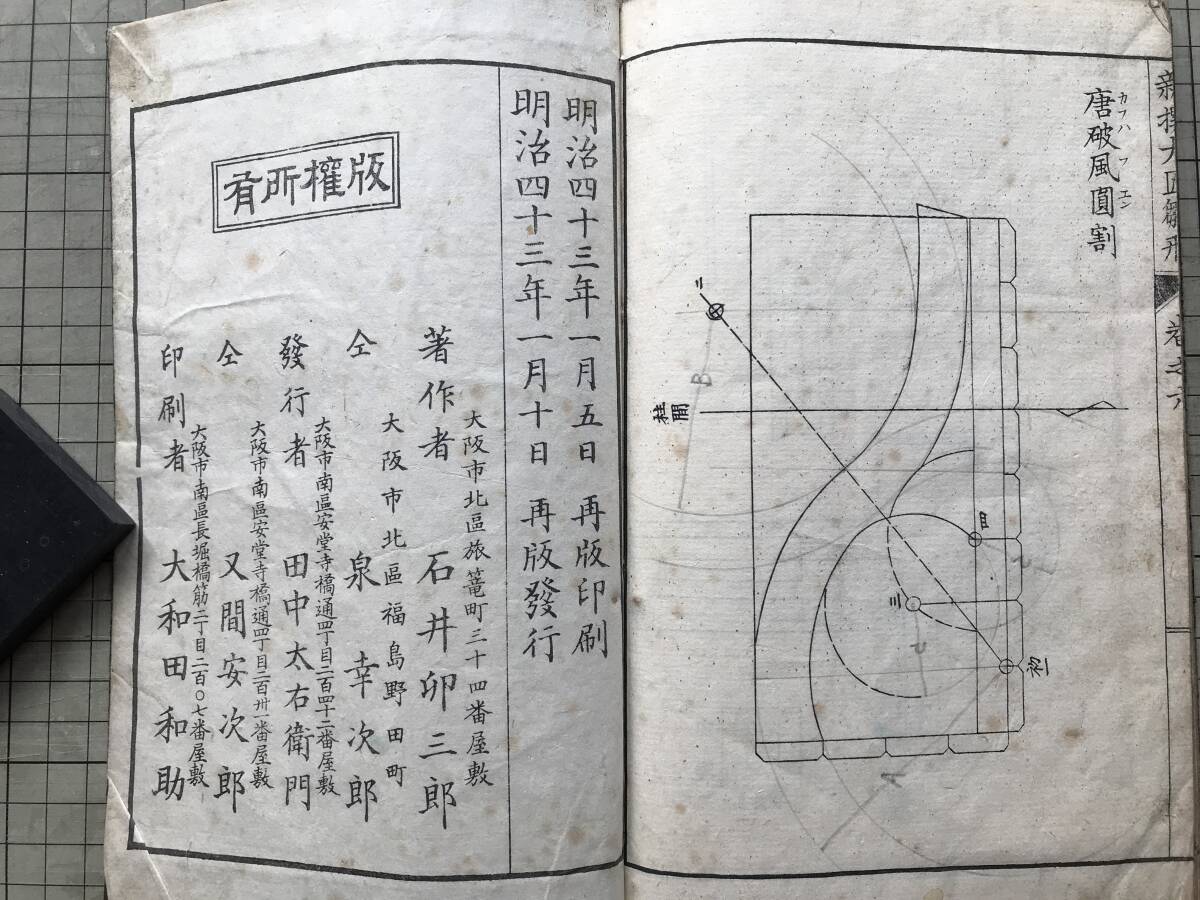 唐破風圓割
カラハフエン
二
柱間
四
三
初
B
A
明治四十三年一月五日 再版印刷
明治四十三年一月十日 再版發行
版權所有
大阪市北區旅篭町三十四番屋敷
著作者 石井卯三郎
大阪市北區福島野田町
仝 泉幸次郎
大阪市南區安堂寺橋通四丁目二百四十二番屋敷
發行者 田中太右衛門
大阪市南區安堂寺橋通四丁目二百卅一番屋敷
仝 又間安次郎
大阪市南區長堀橋筋二丁目二百〇七番屋敷
印刷者 大和田和助